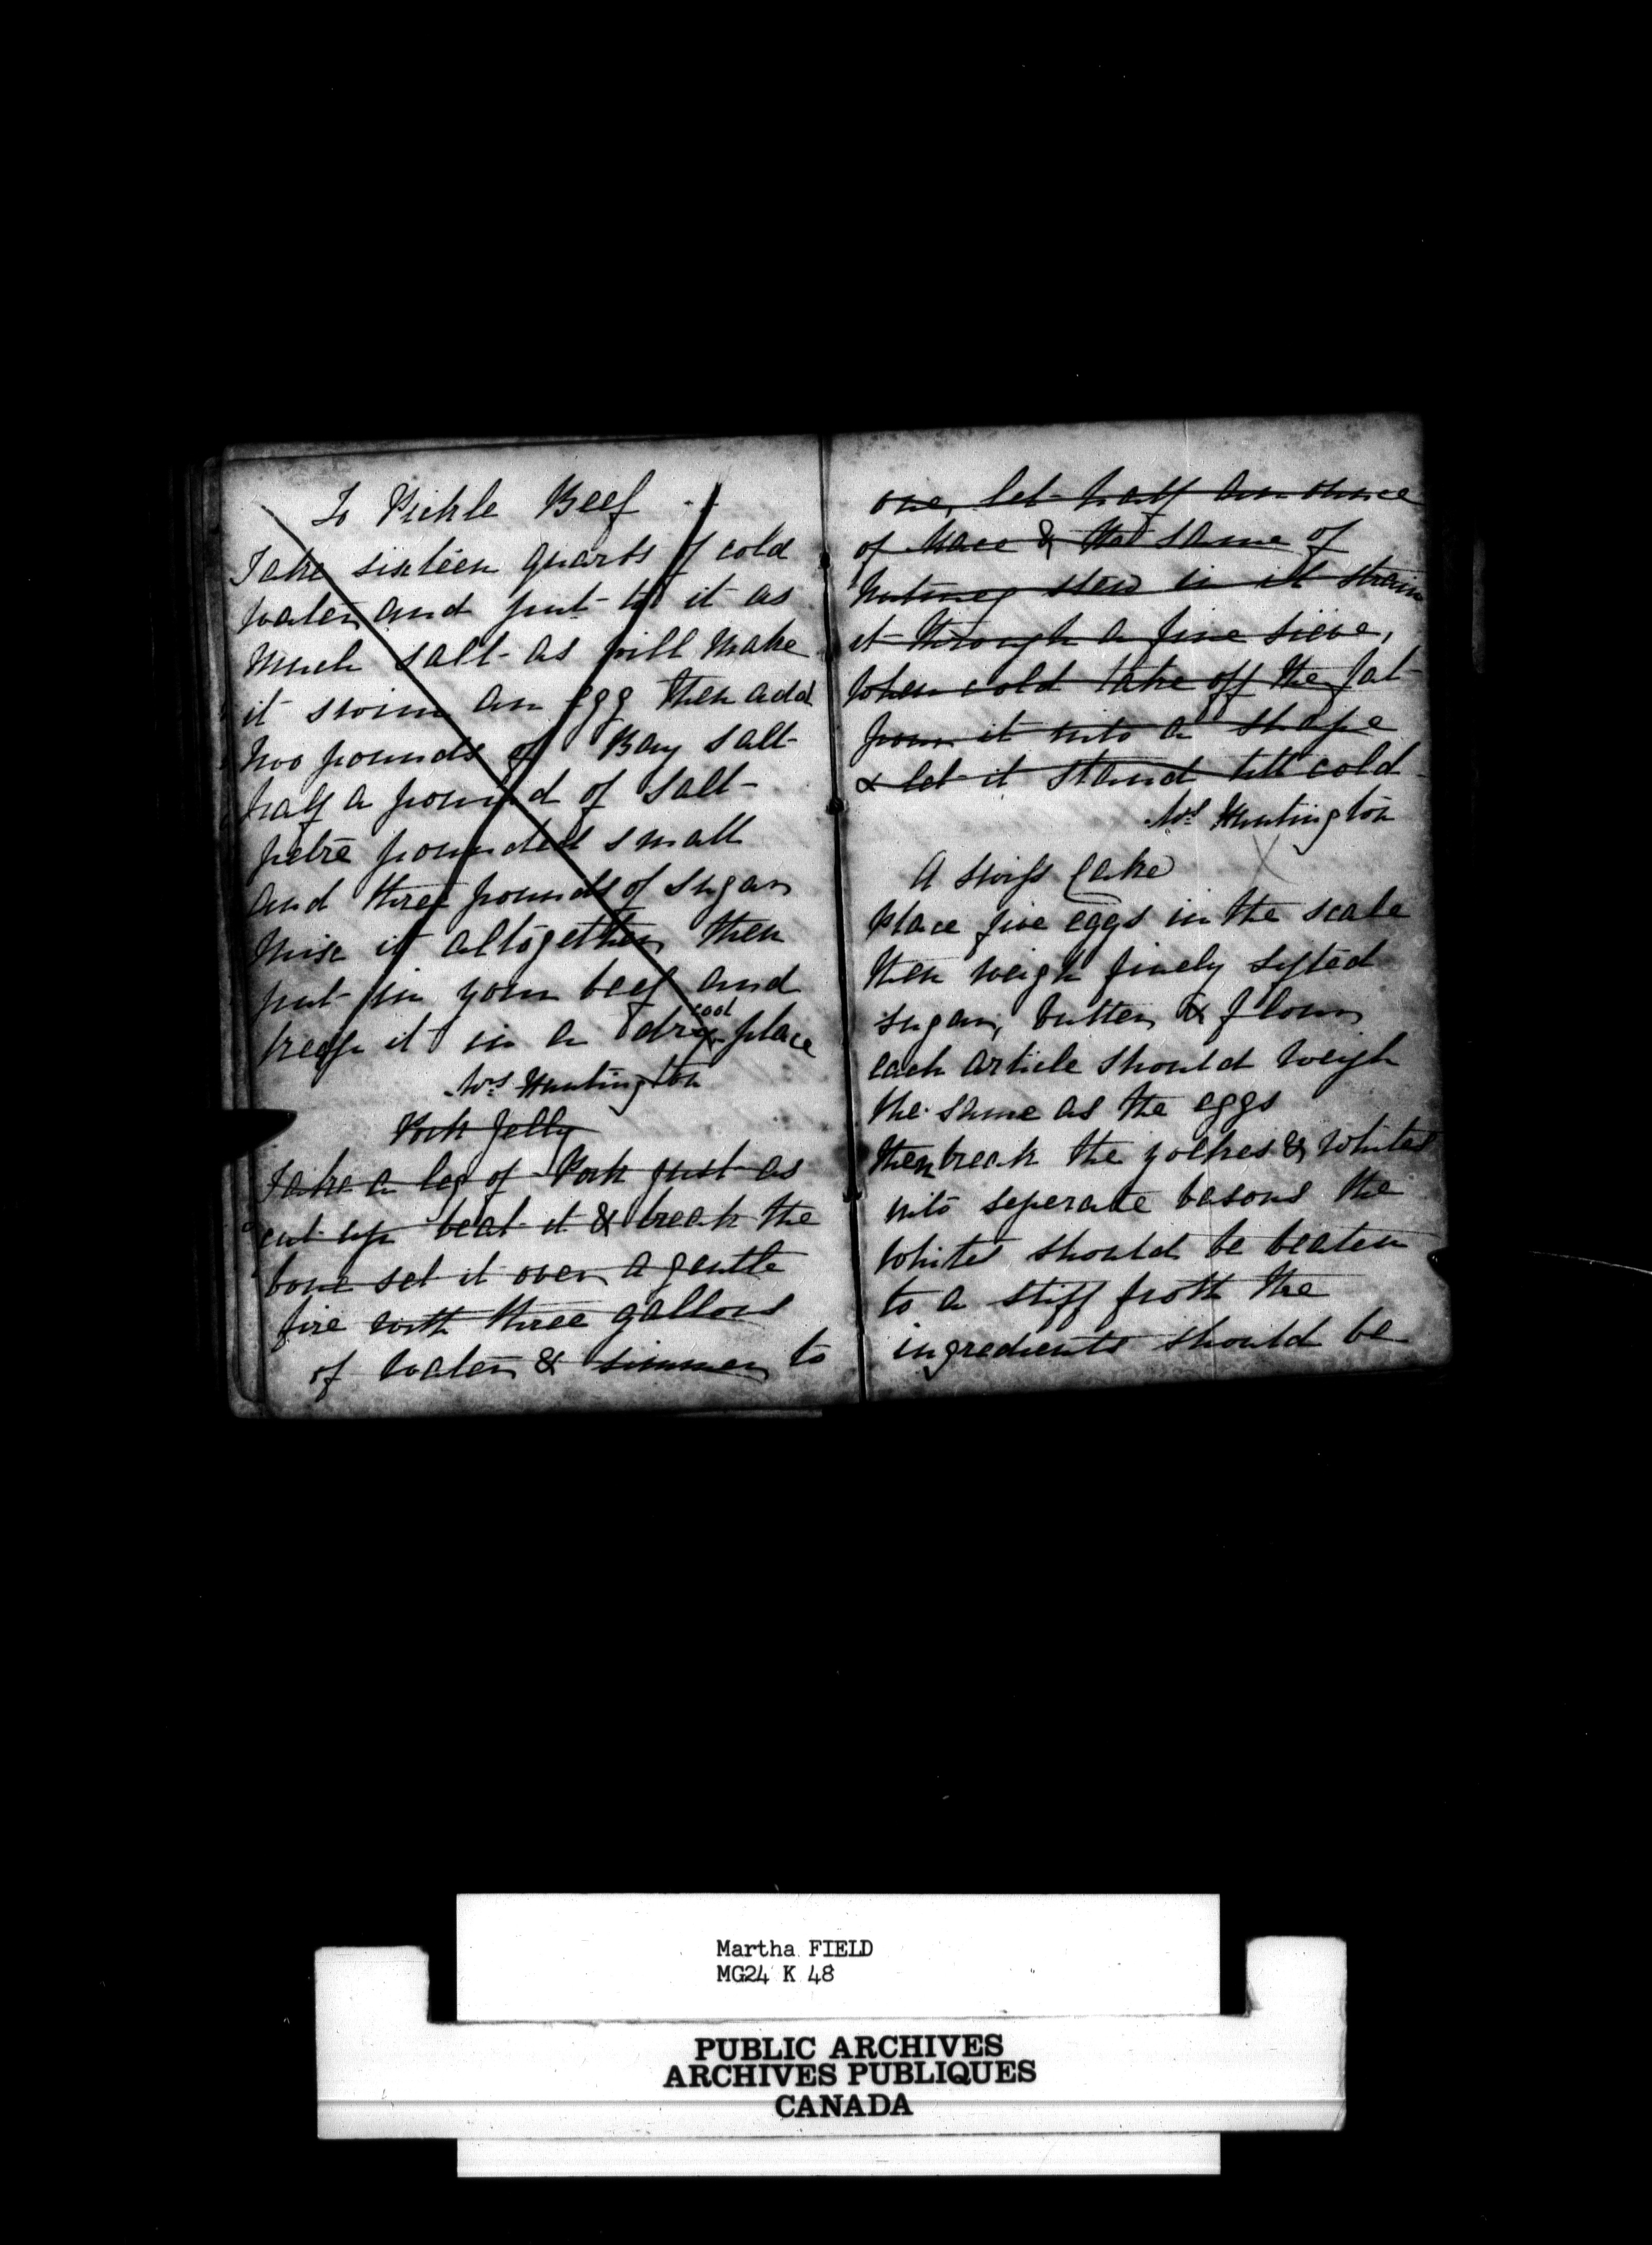 To Pickle Beef
Take sixteen quarts of cold
water and put to it as
much salt as will make
it swim an egg then add
two pounds of Bay salt
half a pound of salt-
petre pounded small
and three pounds of sugar
mix it altogether then
put in your beef and
cool
keep it in a dry place
Mrs Huntington
Pork Jelly
Take a leg of Pork just as
cut up beat it & break the
bone set it over a gentle
fire with three gallons
of water & simmer to
one, let half an ounce
of Mace & the same of
Nutmeg stew in it strain
it through a fine sieve,
when cold take off the fat
pour it into a shape
& let it stand till cold
Mrs Huntington
A Swiss Cake
place five eggs in the scale
then weigh finely sifted
sugar, butter & flour
each article should weigh
the same as the eggs
then break the yolkes & whites
into seperate basons the
whites should be beaten
to a stiff froth the
ingredients should be
Martha FIELD
MG24 K 48
PUBLIC ARCHIVES
ARCHIVES PUBLIQUES
CANADA